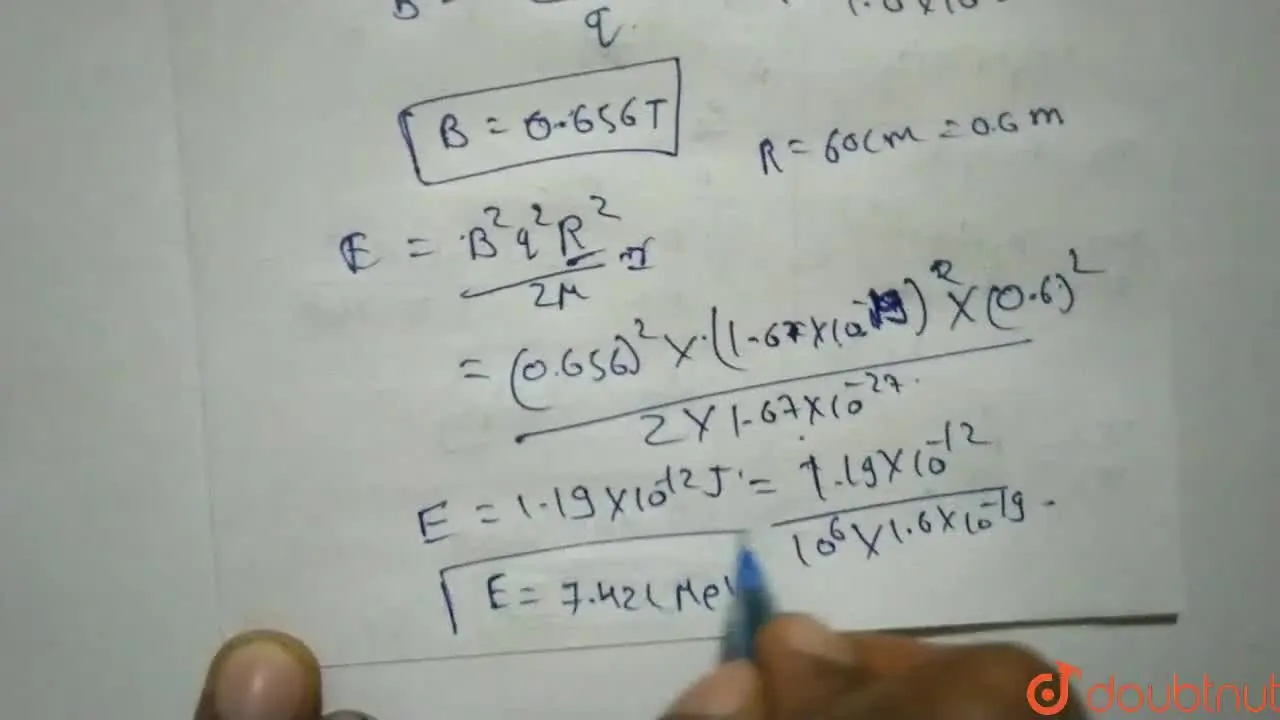 q
B = 0.656T
R = 60cm = 0.6 m
E = B²q²R²
2M
= (0.656)² × (1.67×10⁻¹⁹)² × (0.6)²
2 × 1.67×10⁻²⁷
E = 1.19×10⁻¹² J = 1.19×10⁻¹²
10⁶ × 1.6×10⁻¹⁹
E = 7.421 MeV
doubtnut